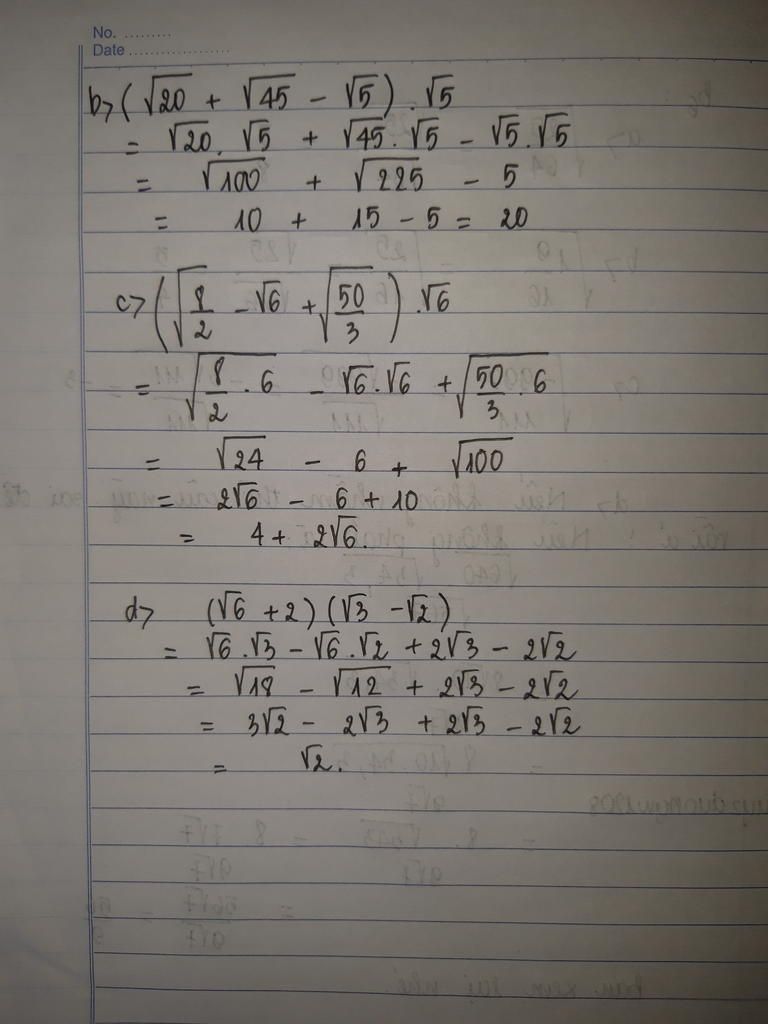 No. .........
Date ...................
b> (√20 + √45 - √5) . √5
= √20 . √5 + √45 . √5 - √5 . √5
= √100 + √225 - 5
= 10 + 15 - 5 = 20
c> (√(8/2) - √6 + √(50/3)) . √6
= √(8/2 . 6) - √6 . √6 + √(50/3 . 6)
= √24 - 6 + √100
= 2√6 - 6 + 10
= 4 + 2√6.
d> (√6 + 2) (√3 - √2)
= √6 . √3 - √6 . √2 + 2√3 - 2√2
= √18 - √12 + 2√3 - 2√2
= 3√2 - 2√3 + 2√3 - 2√2
= √2.